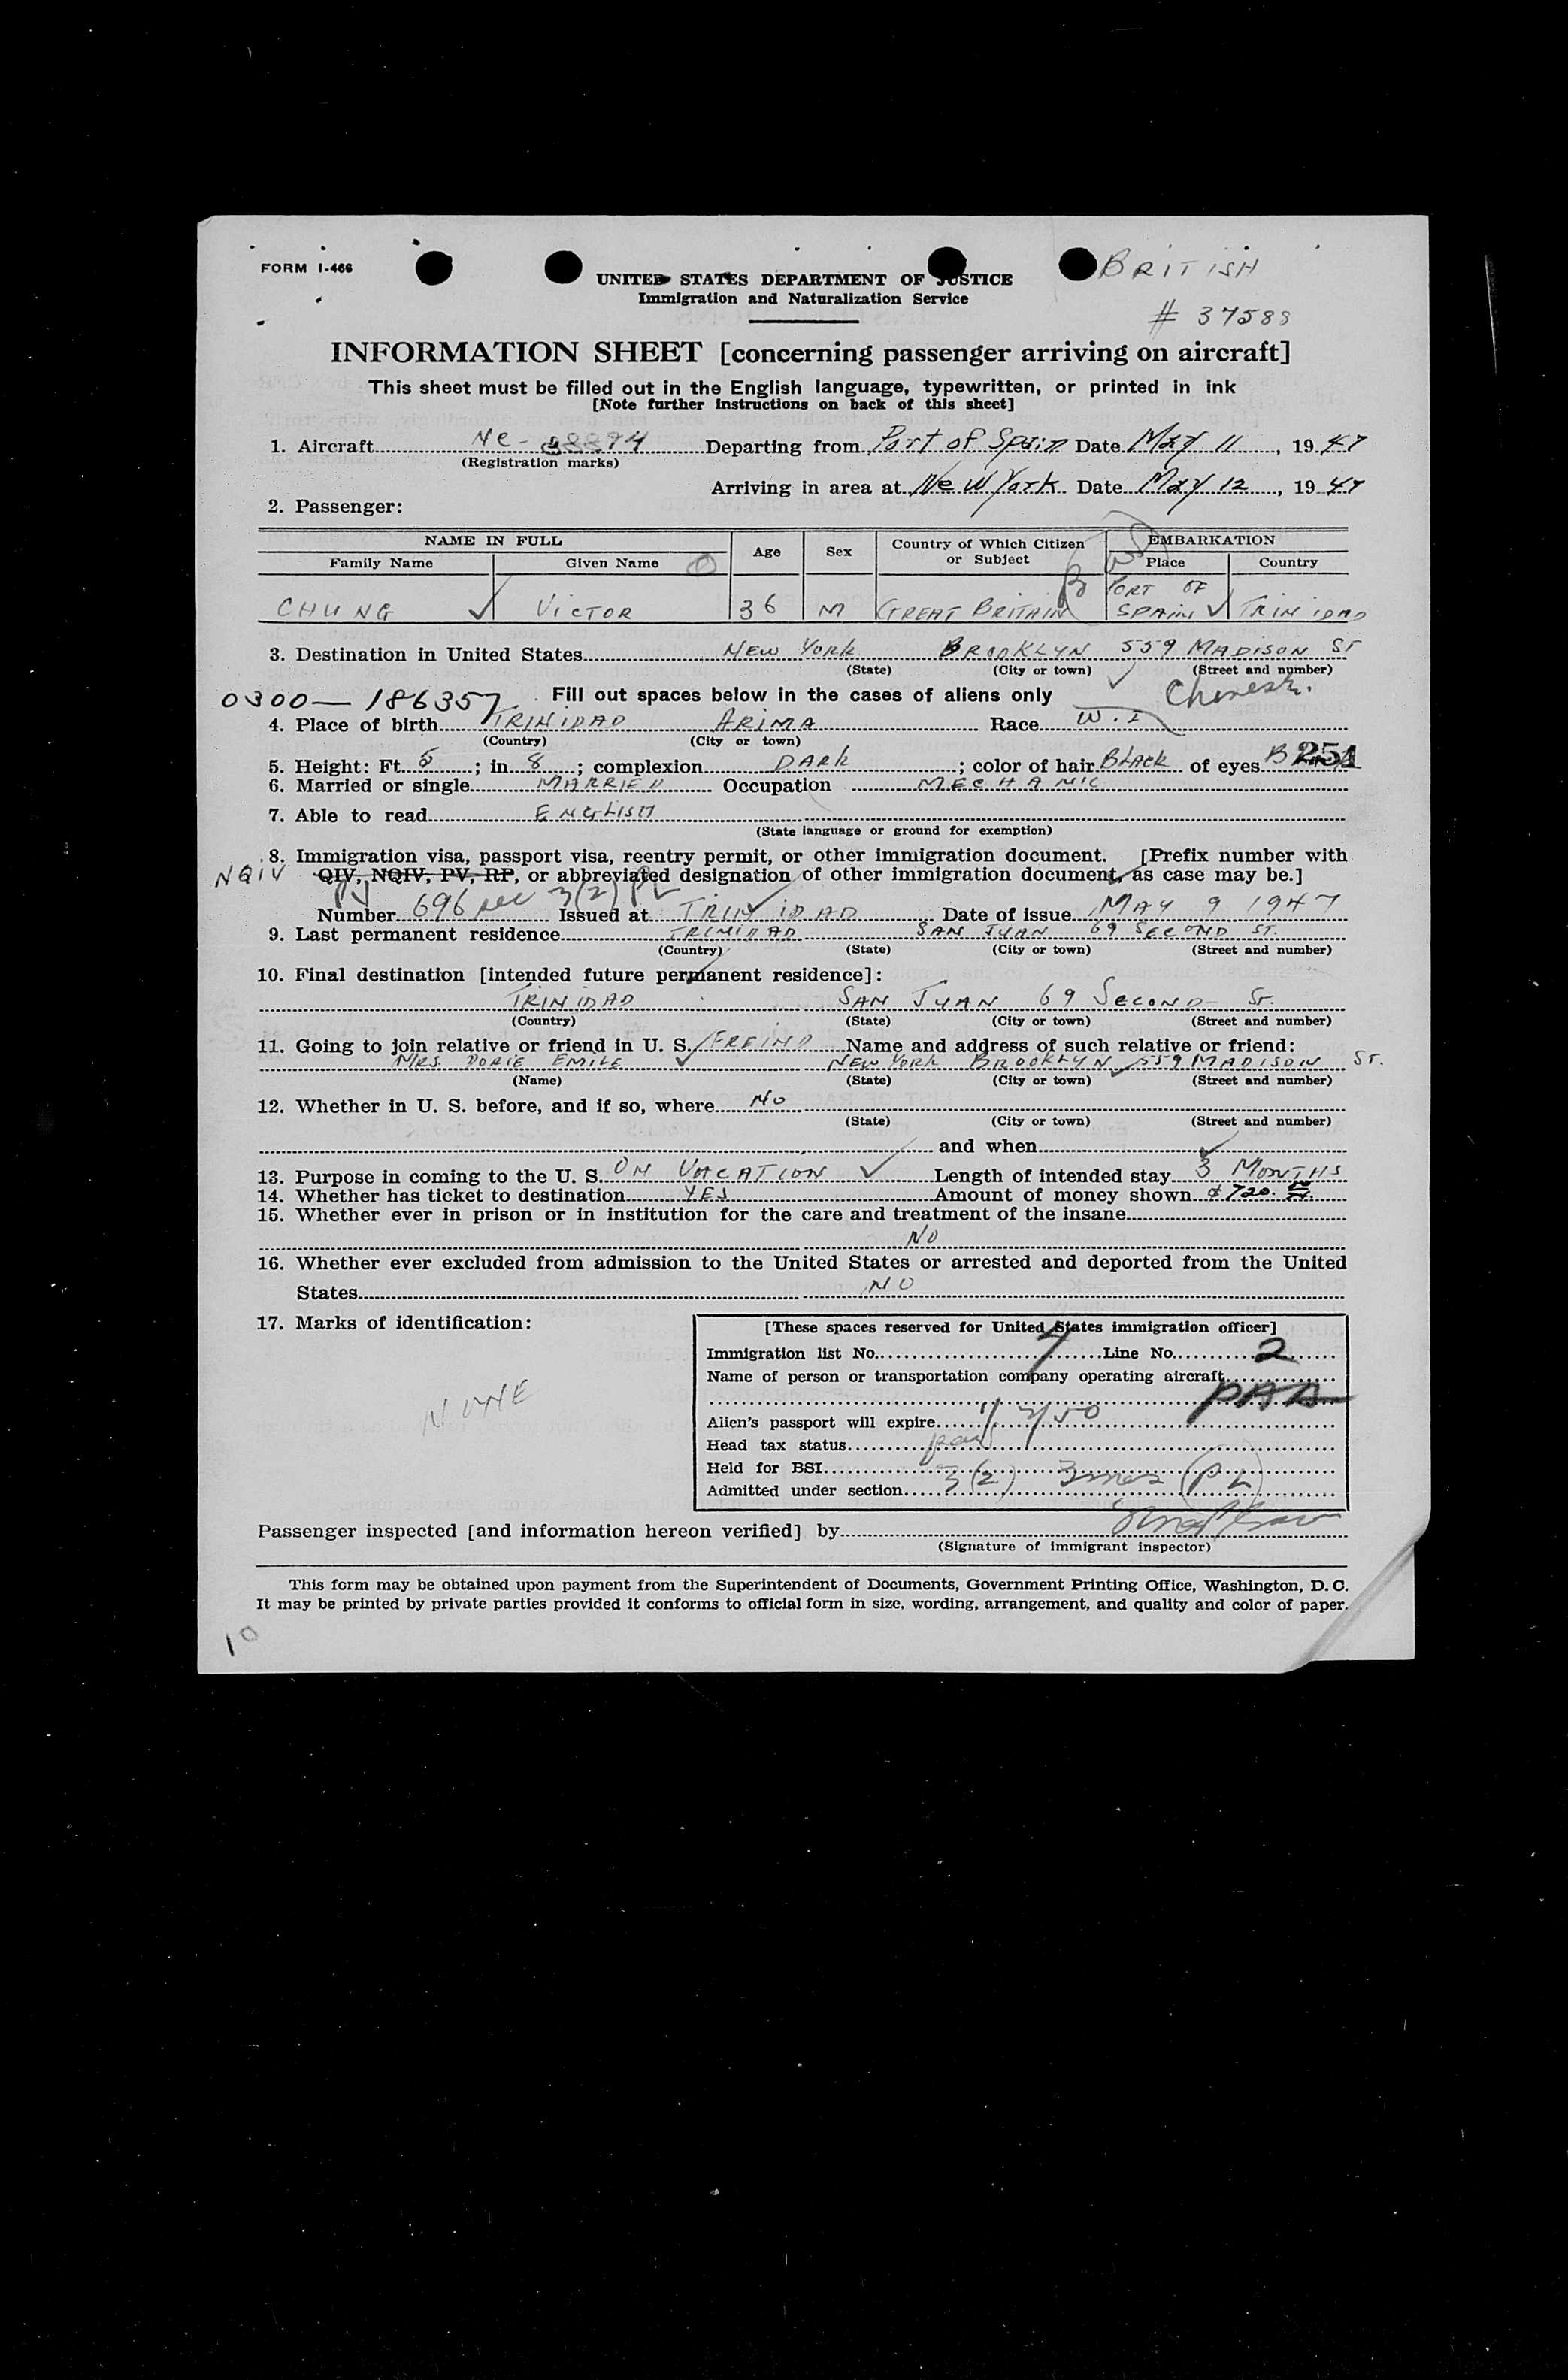 FORM I-466
BRITISH
UNITED STATES DEPARTMENT OF JUSTICE
Immigration and Naturalization Service
INFORMATION SHEET [concerning passenger arriving on aircraft]
This sheet must be filled out in the English language, typewritten, or printed in ink
[Note further instructions on back of this sheet]
1. Aircraft NC- Departing from Port of Spain Date May 11, 1947
(Registration marks)
Arriving in area at New York Date May 12, 1947
2. Passenger:
NAME IN FULL Age Sex Country of Which Citizen or Subject EMBARKATION
Family Name Given Name Place Country
CHUNG VICTOR 36 M GREAT BRITAIN PORT OF SPAIN TRINIDAD
3. Destination in United States NEW YORK BROOKLYN 559 MADISON ST
(State) (City or town) (Street and number)
0300—186357 Fill out spaces below in the cases of aliens only Chinese.
4. Place of birth TRINIDAD ARIMA Race W.I
(Country) (City or town)
5. Height: Ft. 5; in. 8; complexion DARK; color of hair BLACK of eyes B 251
6. Married or single MARRIED Occupation MECHANIC
7. Able to read ENGLISH
(State language or ground for exemption)
8. Immigration visa, passport visa, reentry permit, or other immigration document. [Prefix number with
NQIV QIV, NQIV, PV, RP, or abbreviated designation of other immigration document, as case may be.]
PV
Number 696 sec 3(2) PL Issued at TRINIDAD Date of issue MAY 9 1947
9. Last permanent residence TRINIDAD SAN JUAN 69 SECOND ST.
(Country) (State) (City or town) (Street and number)
10. Final destination [intended future permanent residence]:
TRINIDAD SAN JUAN 69 SECOND ST.
(Country) (State) (City or town) (Street and number)
11. Going to join relative or friend in U. S. FREIND Name and address of such relative or friend:
MRS. DORIE EMILE NEW YORK BROOKLYN 559 MADISON ST.
(Name) (State) (City or town) (Street and number)
12. Whether in U. S. before, and if so, where NO
(State) (City or town) (Street and number)
and when
13. Purpose in coming to the U. S. ON VACATION Length of intended stay 3 MONTHS
14. Whether has ticket to destination YES Amount of money shown $720.
15. Whether ever in prison or in institution for the care and treatment of the insane
NO
16. Whether ever excluded from admission to the United States or arrested and deported from the United
States NO
17. Marks of identification:
NONE
[These spaces reserved for United States immigration officer]
Immigration list No. 7 Line No. 2
Name of person or transportation company operating aircraft
PAA
Alien's passport will expire
Head tax status
Held for BSI
Admitted under section 3(2) 3 mos (PL)
Passenger inspected [and information hereon verified] by
(Signature of immigrant inspector)
This form may be obtained upon payment from the Superintendent of Documents, Government Printing Office, Washington, D. C.
It may be printed by private parties provided it conforms to official form in size, wording, arrangement, and quality and color of paper.
10